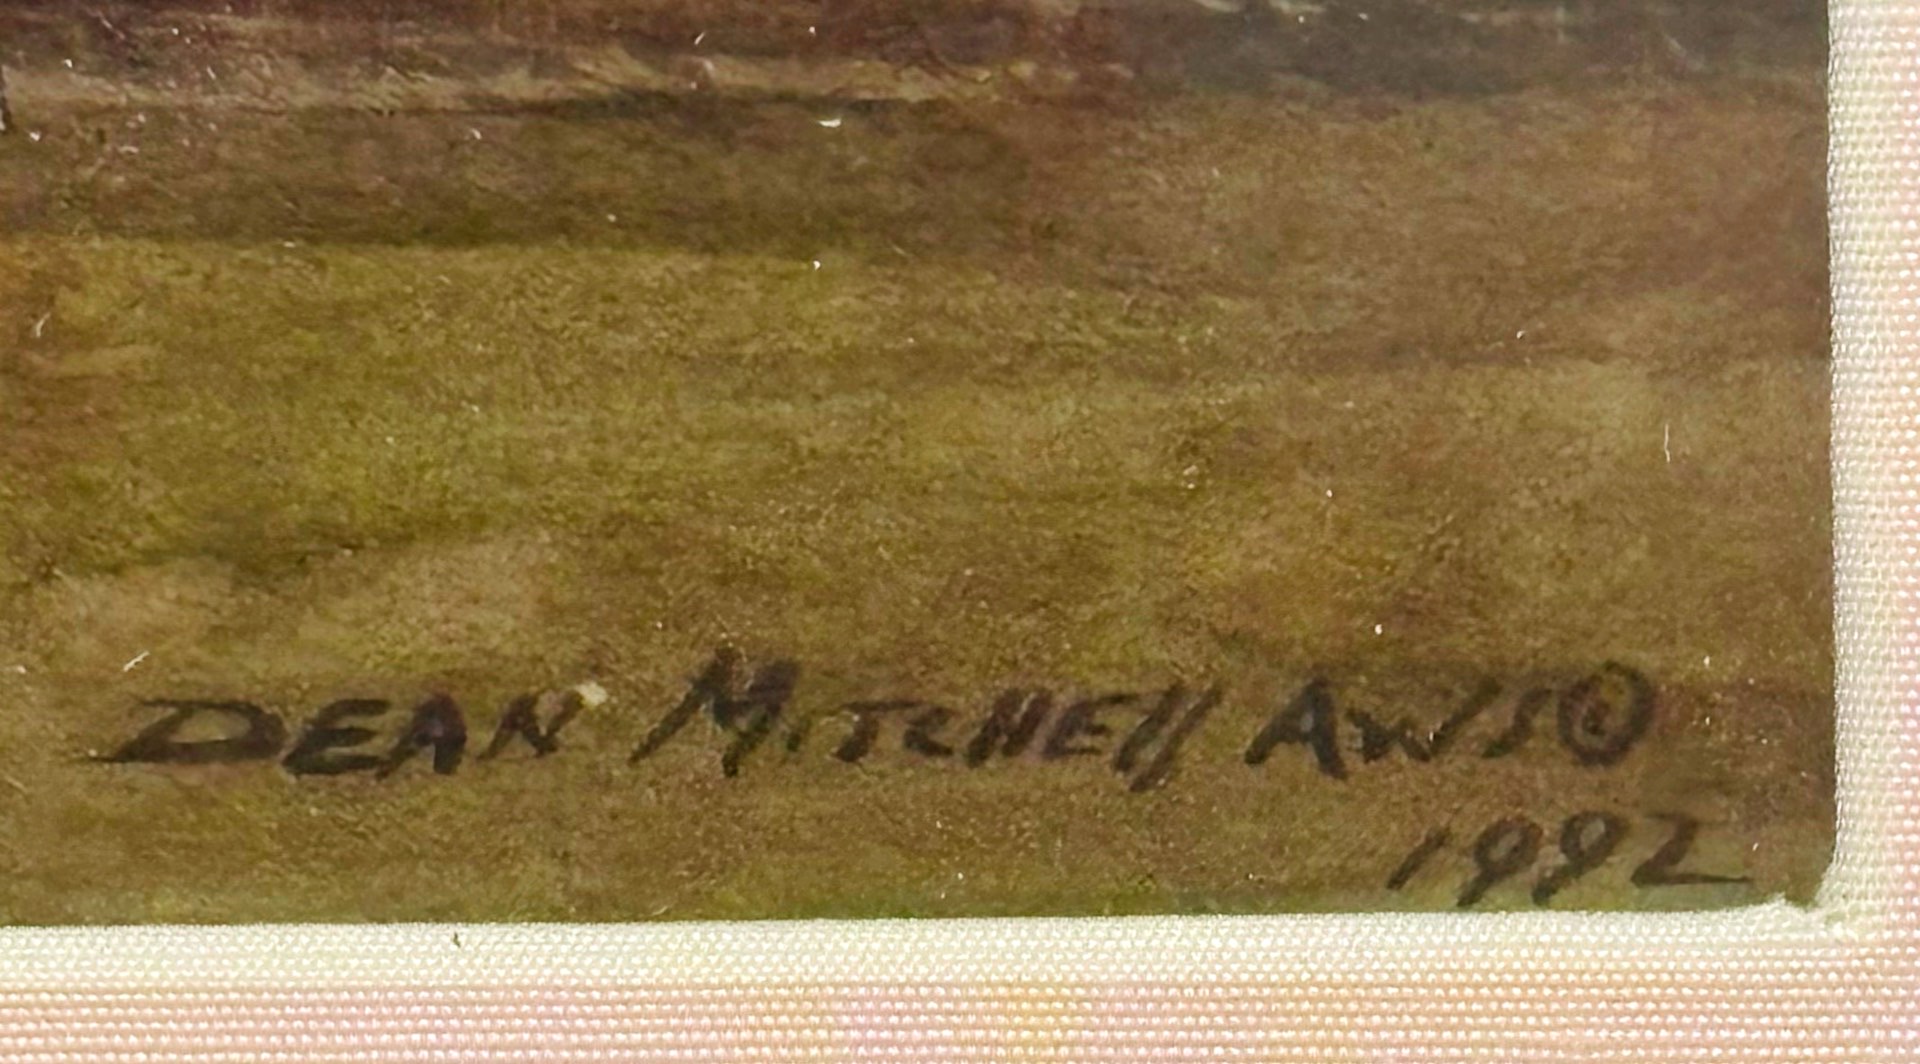 DEAN MITCHELL AWS©
1992